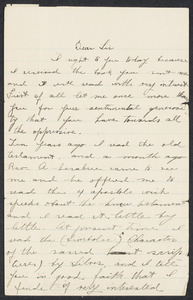 Dear Sir
I right to you today because
I received the book you sent me
and it will read with very interest
First of all let me once more than
you for your sentimental generous
by that you have towards all
the oppressive.
Ten years ago I read the old
testament, and a month ago
a came to see
me and offered me to
read the apostols wich
speeks about the new testament
and I read it little by
little. let present time I
read the (Simbolic) Character
of the sacred
by Silver, and I tell
you in good faith that I
finded of very interested.